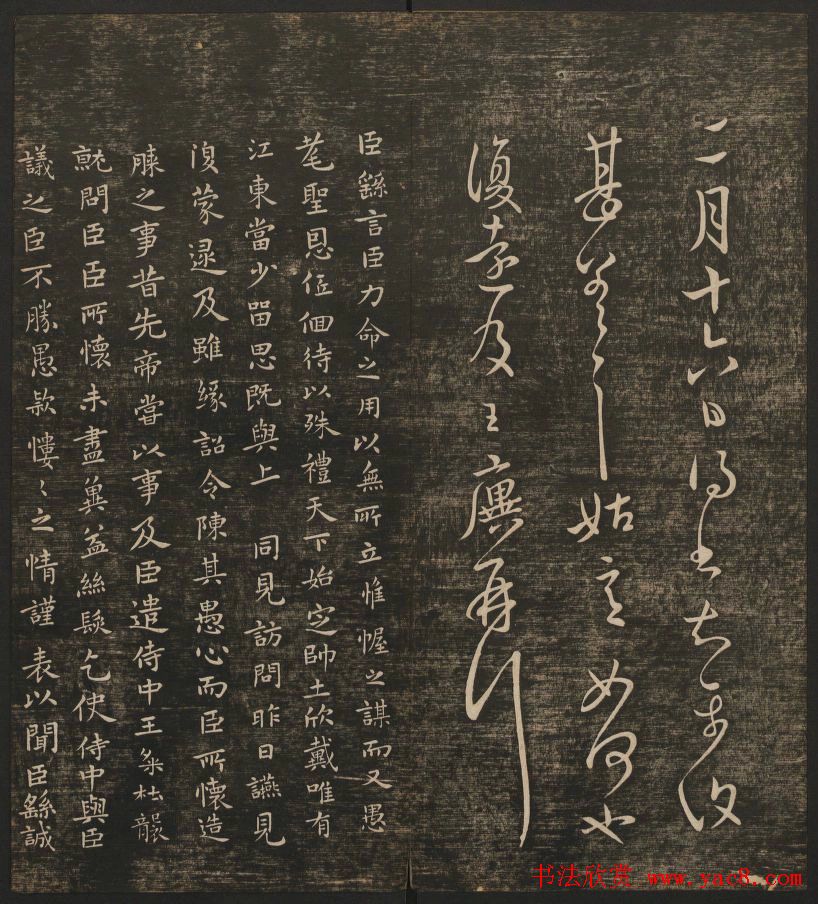 二月十六日得書
甚姑言如何也
復遣及王廙再行
臣繇言臣力命之用以無所立惟幄之謀而又愚
耄聖恩低佪待以殊禮天下始定帥土欣戴唯有
江東當少留思既與上 同見訪問昨日讌見
復蒙逮及雖緣詔令陳其愚心而臣所懷造
膝之事昔先帝嘗以事及臣遣侍中王粲杜襲
就問臣臣所懷未盡冀益絲髮乞使侍中與臣
議之臣不勝愚款慺〻之情謹表以聞臣繇誠
书法欣赏 www.yac8.com